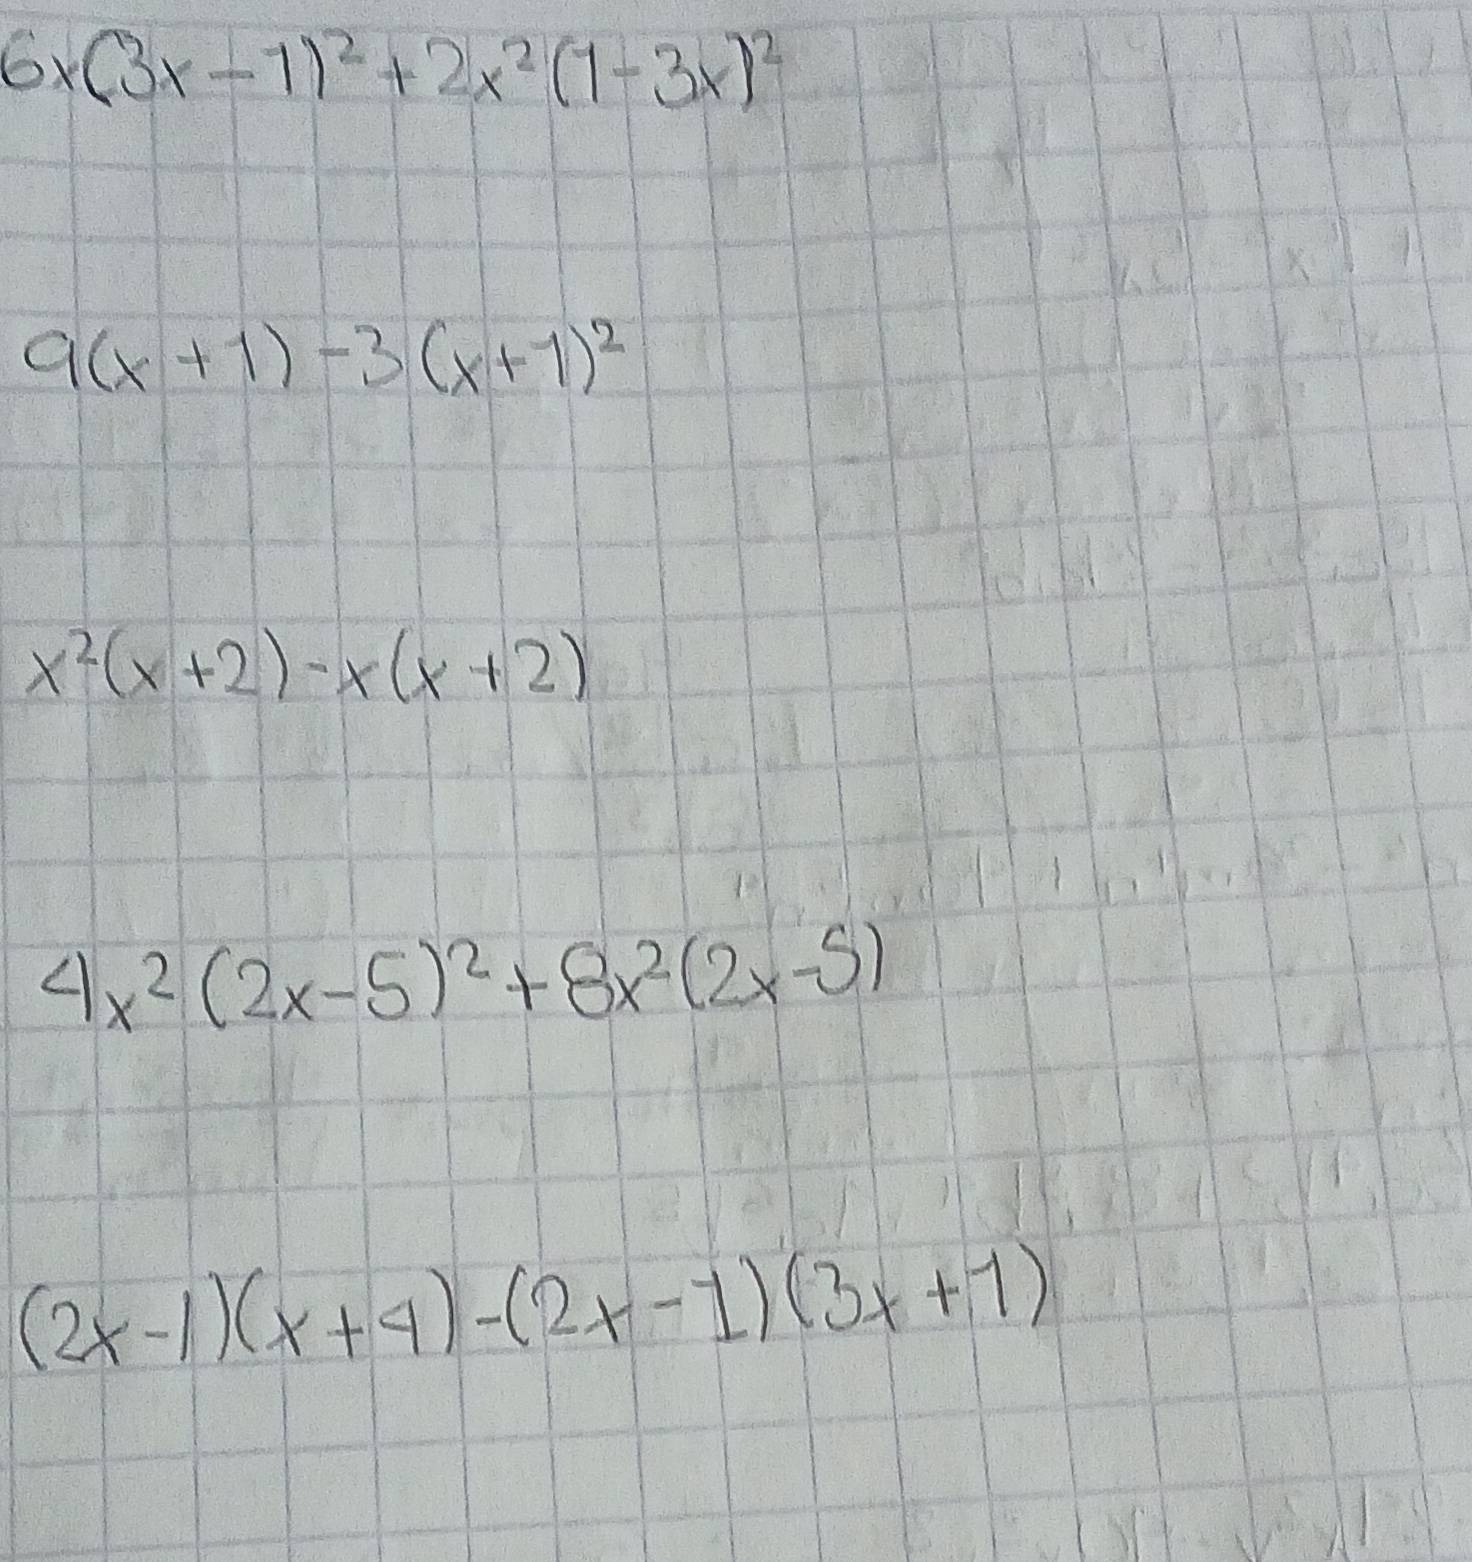 6x(3x-1)²+2x²(1-3x)²
9(x+1)-3(x+1)²
x²(x+2)-x(x+2)
4x²(2x-5)²+8x²(2x-5)
(2x-1)(x+4)-(2x-1)(3x+1)